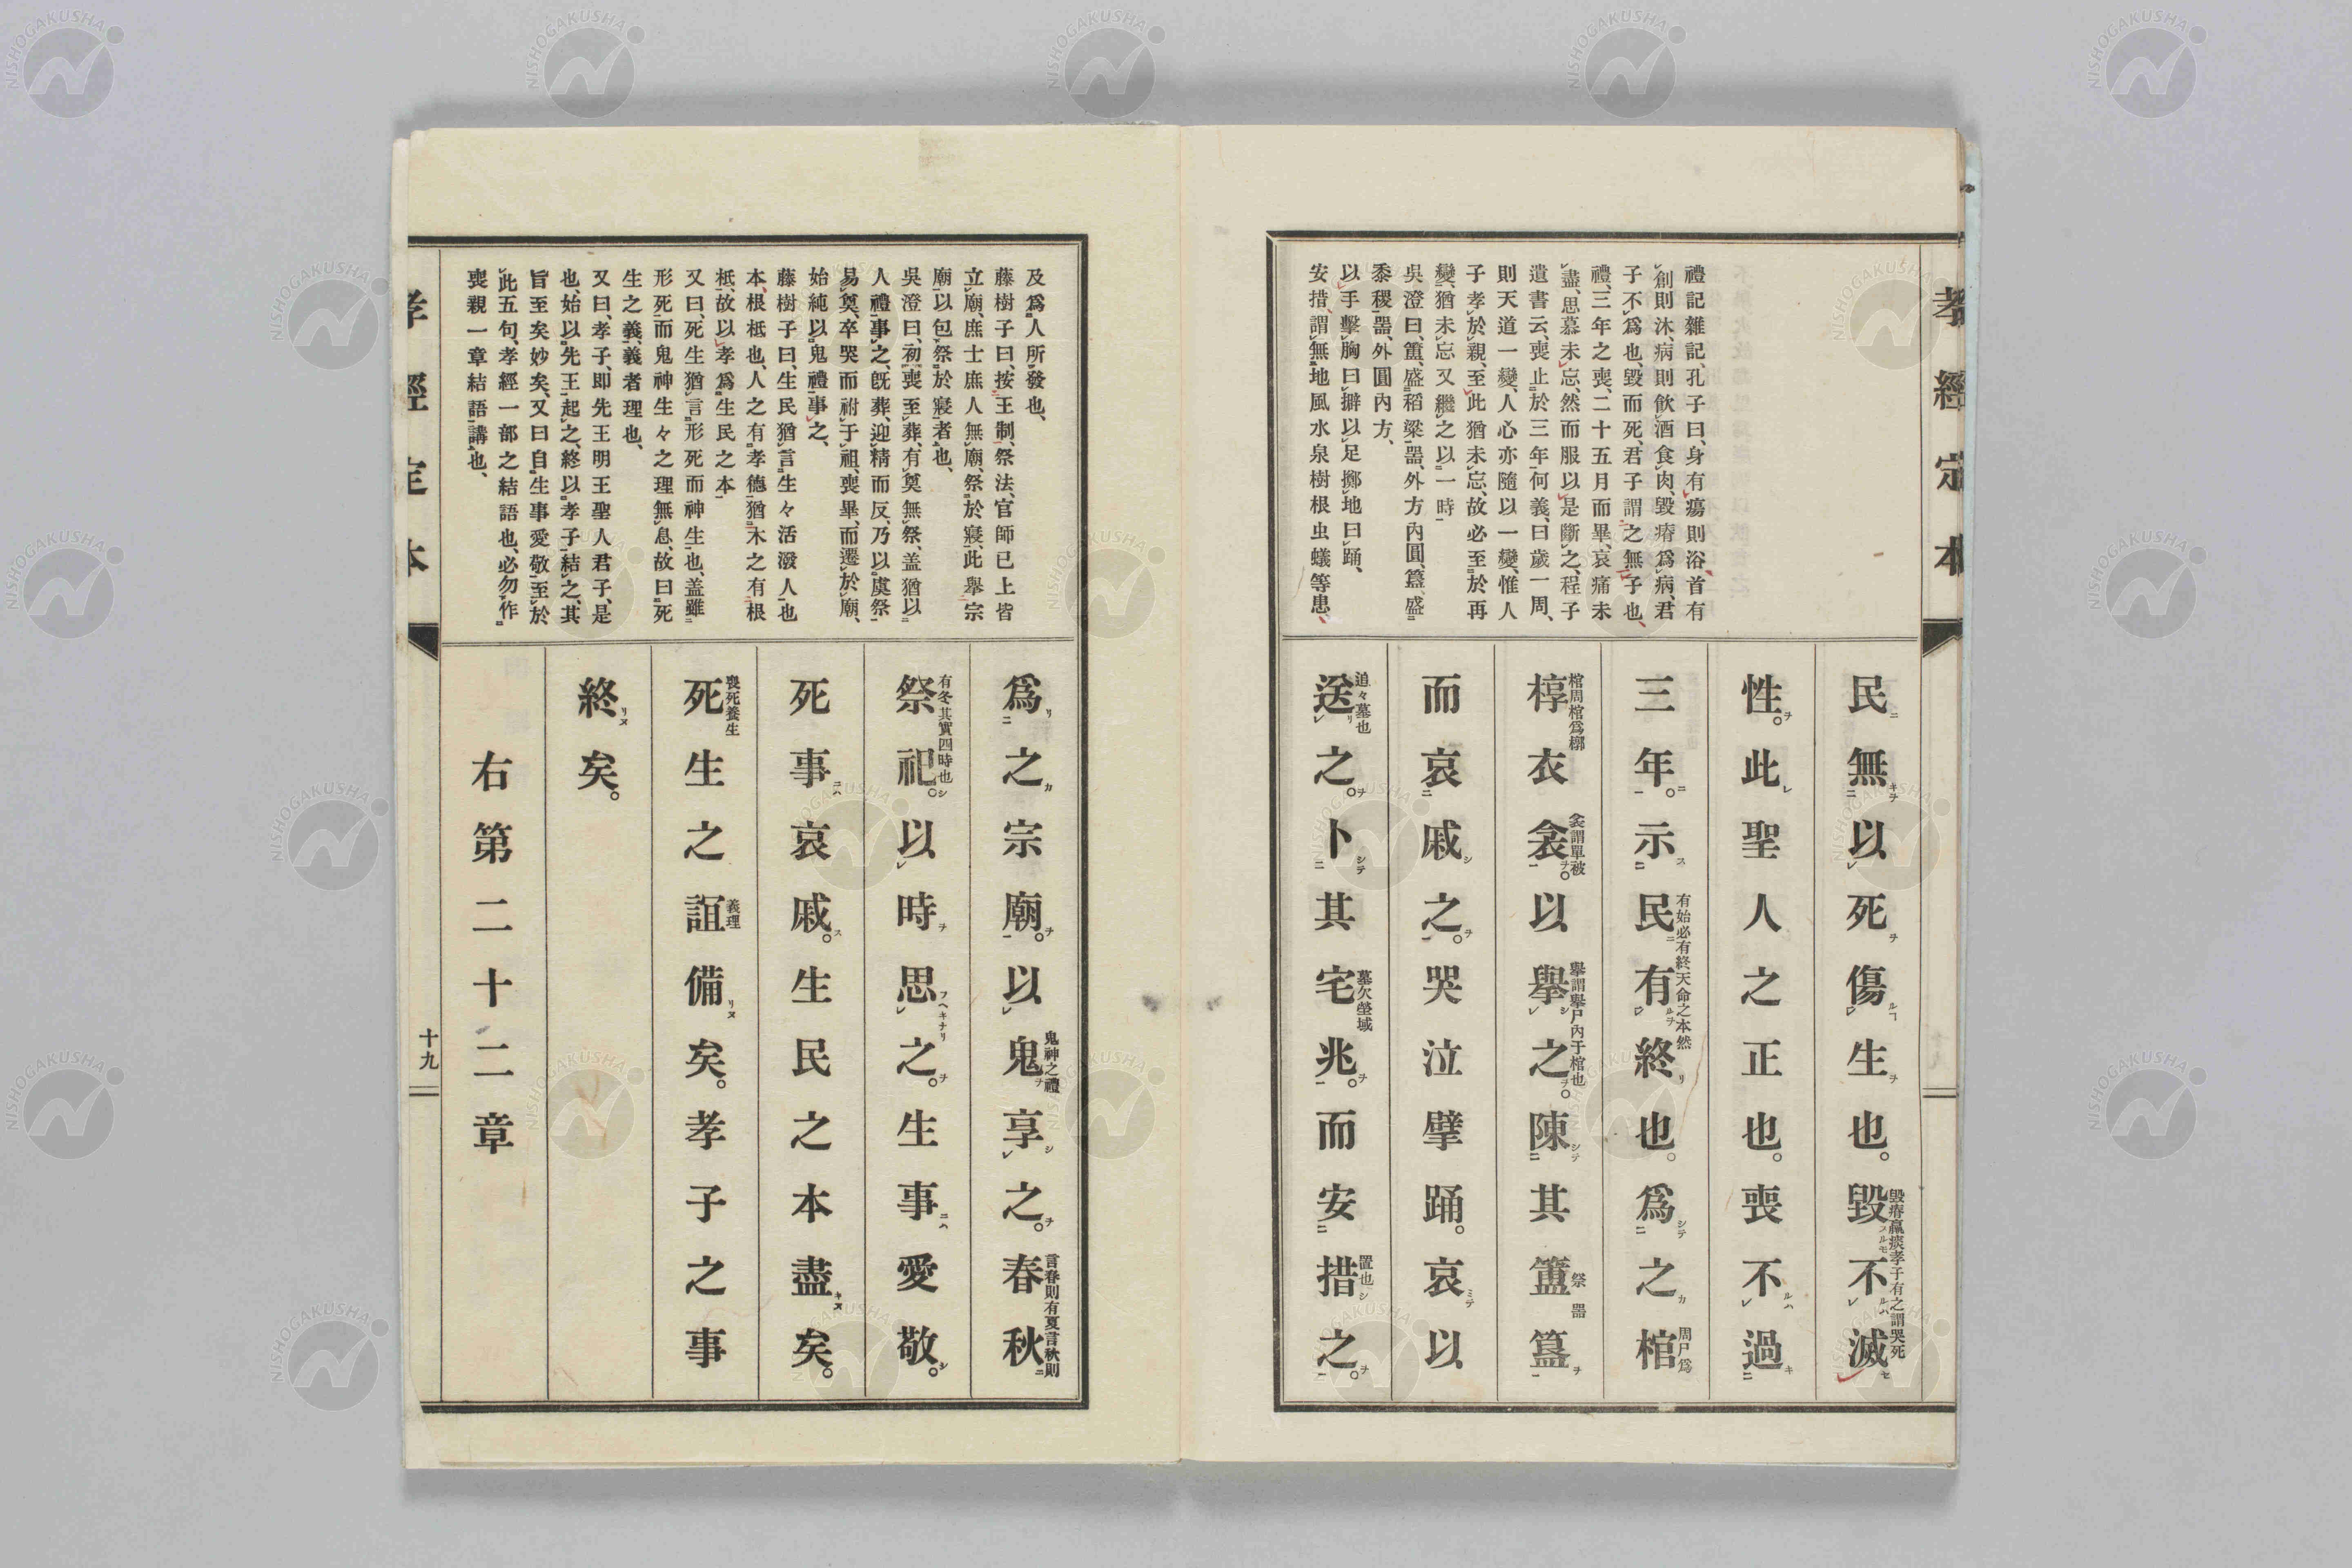 孝經定本
禮記雜記、孔子曰、身有瘍則浴、首有
創則沐、病則飮酒食肉、毀瘠爲病、君
子不爲也、毀而死、君子謂之無子也、
禮、三年之喪、二十五月而畢、哀痛未
盡、思慕未忘、然而服以是斷之、程子
遺書云、喪止於三年何義、曰歲一周、
則天道一變、人心亦隨以一變、惟人
子孝於親、至此猶未忘、故必至於再
變、猶未忘又繼之以一時
吳澄曰、簠、盛稻粱器、外方內圓、簋、盛
黍稷器、外圓內方、
以手擊胸曰擗以足擲地曰踊、
安措、謂無地風水泉樹根虫蟻等患、
民無以死傷生也。毀不滅
毀瘠羸瘐孝子有之謂哭死
性。此聖人之正也。喪不過
三年。示民有終也。爲之棺
有始必有終天命之本然
周尸爲
椁衣衾。以擧之。陳其簠簋
棺周棺爲槨
衾謂單被
擧謂擧尸內于棺也
祭器
而哀戚之。哭泣擘踊。哀以
送之。卜其宅兆。而安措之。
追々墓也
墓穴塋域
置也
及爲人所發也、
藤樹子曰、按王制、祭法、官師已上皆
立廟、庶士庶人無廟、祭於寢、此擧宗
廟以包祭於寢者也、
吳澄曰、初喪至葬、有奠無祭、盖猶以
人禮事之、旣葬、迎精而反、乃以虞祭
易奠、卒哭而祔于祖、喪畢、而遷於廟、
始純以鬼禮事之、
藤樹子曰、生民猶言生々活潑人也
本、根柢也、人之有孝德猶木之有根
柢、故以孝爲生民之本
又曰、死生猶言形死而神生也、盖雖
形死而鬼神生々之理無息、故曰死
生之義、義者理也、
又曰、孝子、即先王明王聖人君子、是
也、始以先王起之、終以孝子結之、其
旨至矣妙矣、又曰自生事愛敬至於
此五句、孝經一部之結語也、必勿作
喪親一章結語講也、
爲之宗廟。以鬼享之。春秋
鬼神之禮
言春則有夏言秋則
祭祀。以時思之。生事愛敬。
有冬其實四時也
死事哀戚。生民之本盡矣。
死生之誼備矣。孝子之事
喪死養生
義理
終矣。
右第二十二章
孝經定本
十九